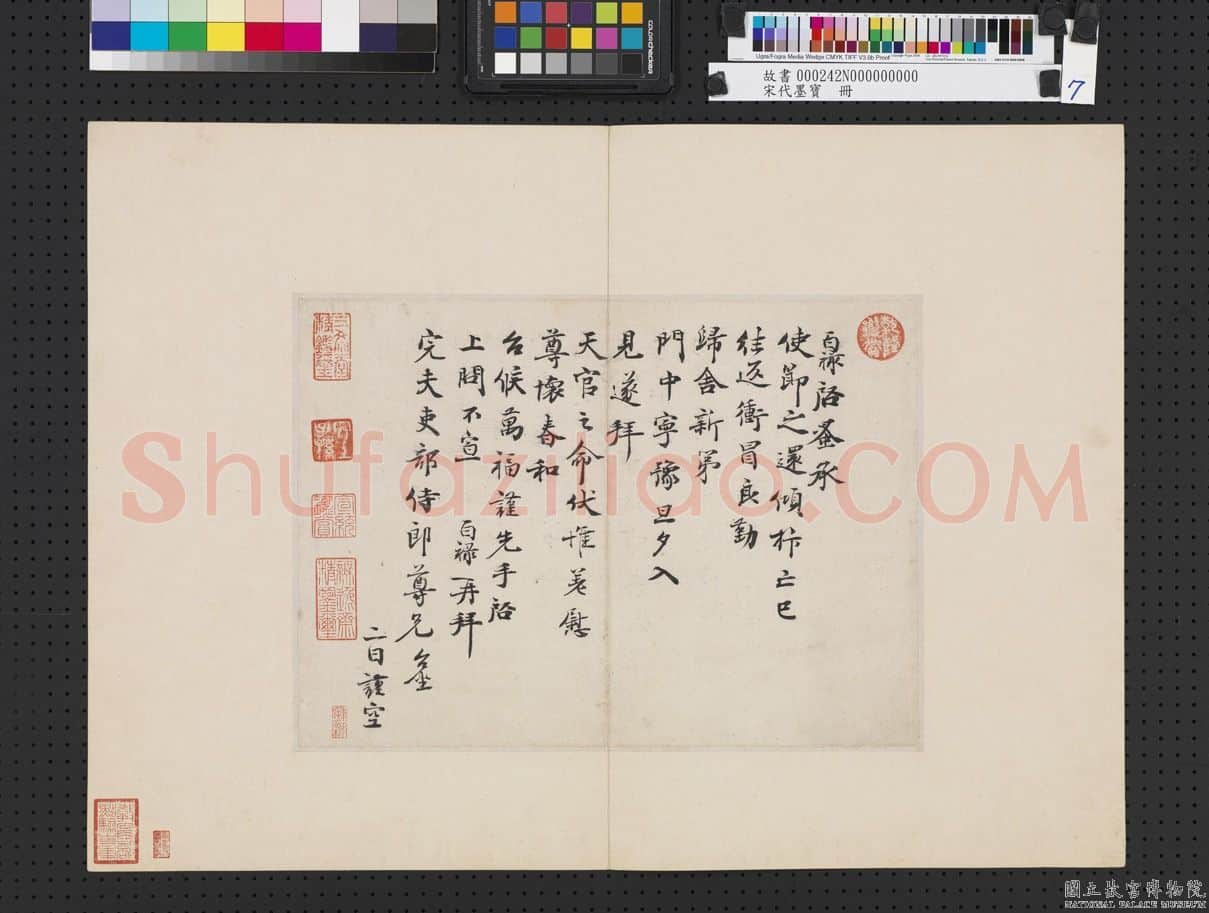 Ugra/Fogra Media Wedge CMYK TIFF V3.0b Proof
colorchecker
故書 000242N000000000
宋代墨寶 冊
7
百祿啓蚤承
使節之還傾柝亡已
往返衝冒良勤
歸舍新第
門中寧豫旦夕入
見遂拜
天官之命伏惟差慰
尊懷春和
台候萬福謹先手啓
上問不宣 百祿再拜
完夫吏部侍郎尊兄台坐
二日謹空
Shufaziliao.COM
國立故宮博物院
NATIONAL PALACE MUSEUM